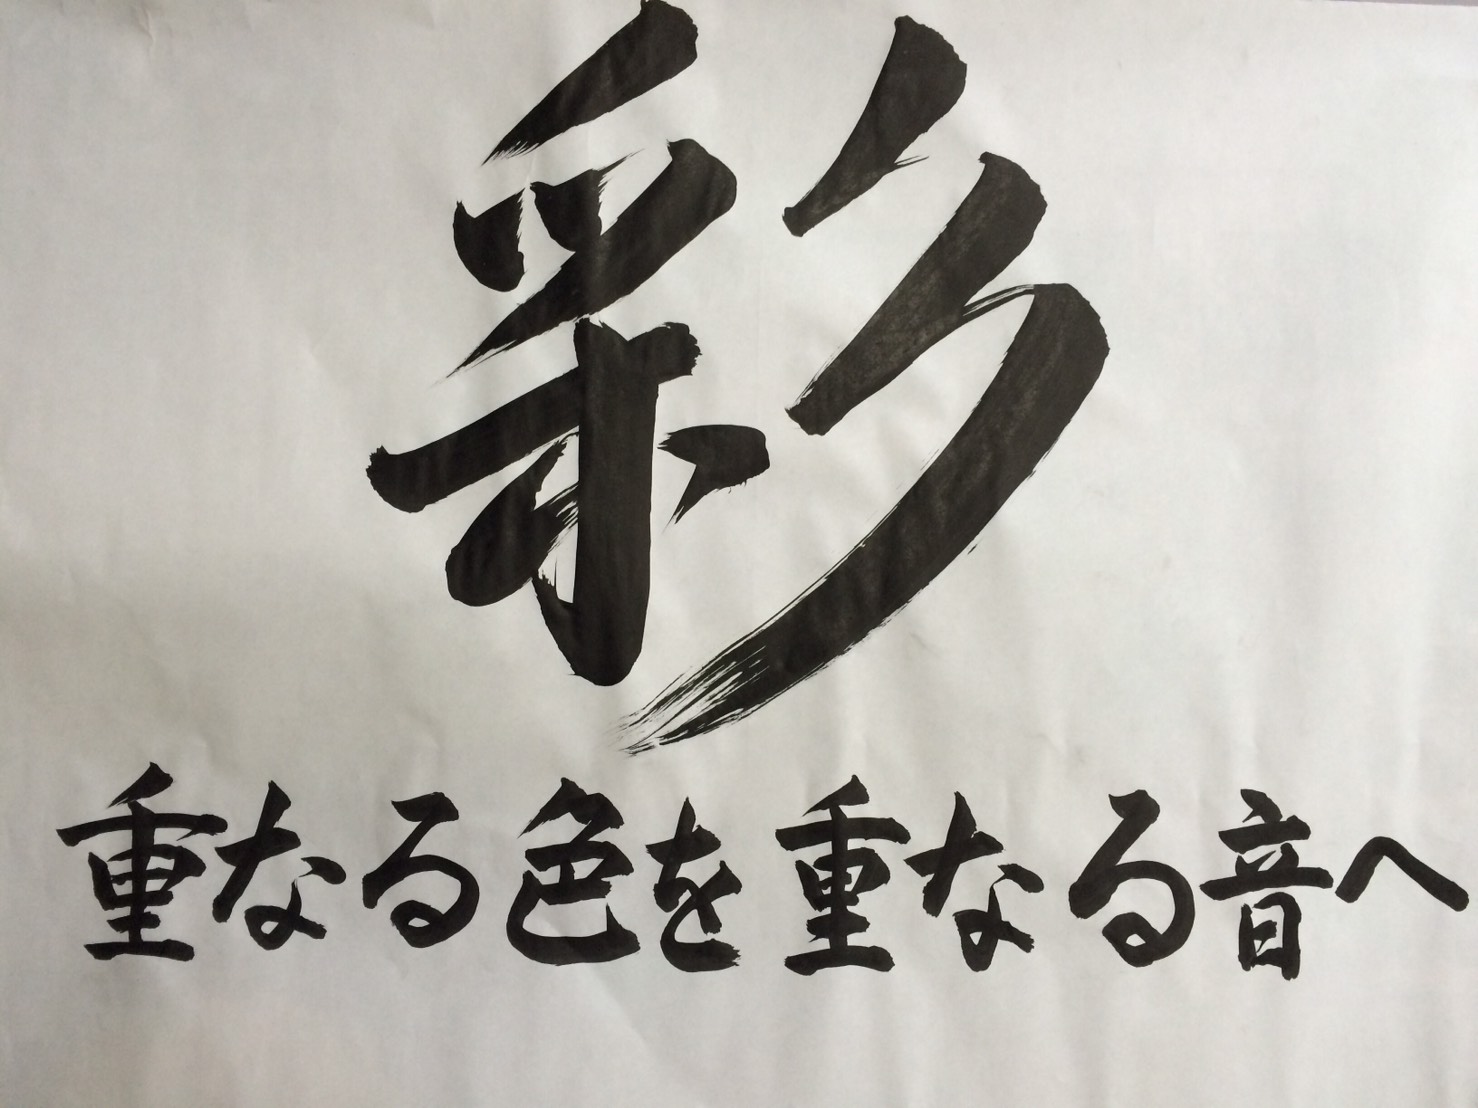 彩
重なる色を重なる音へ